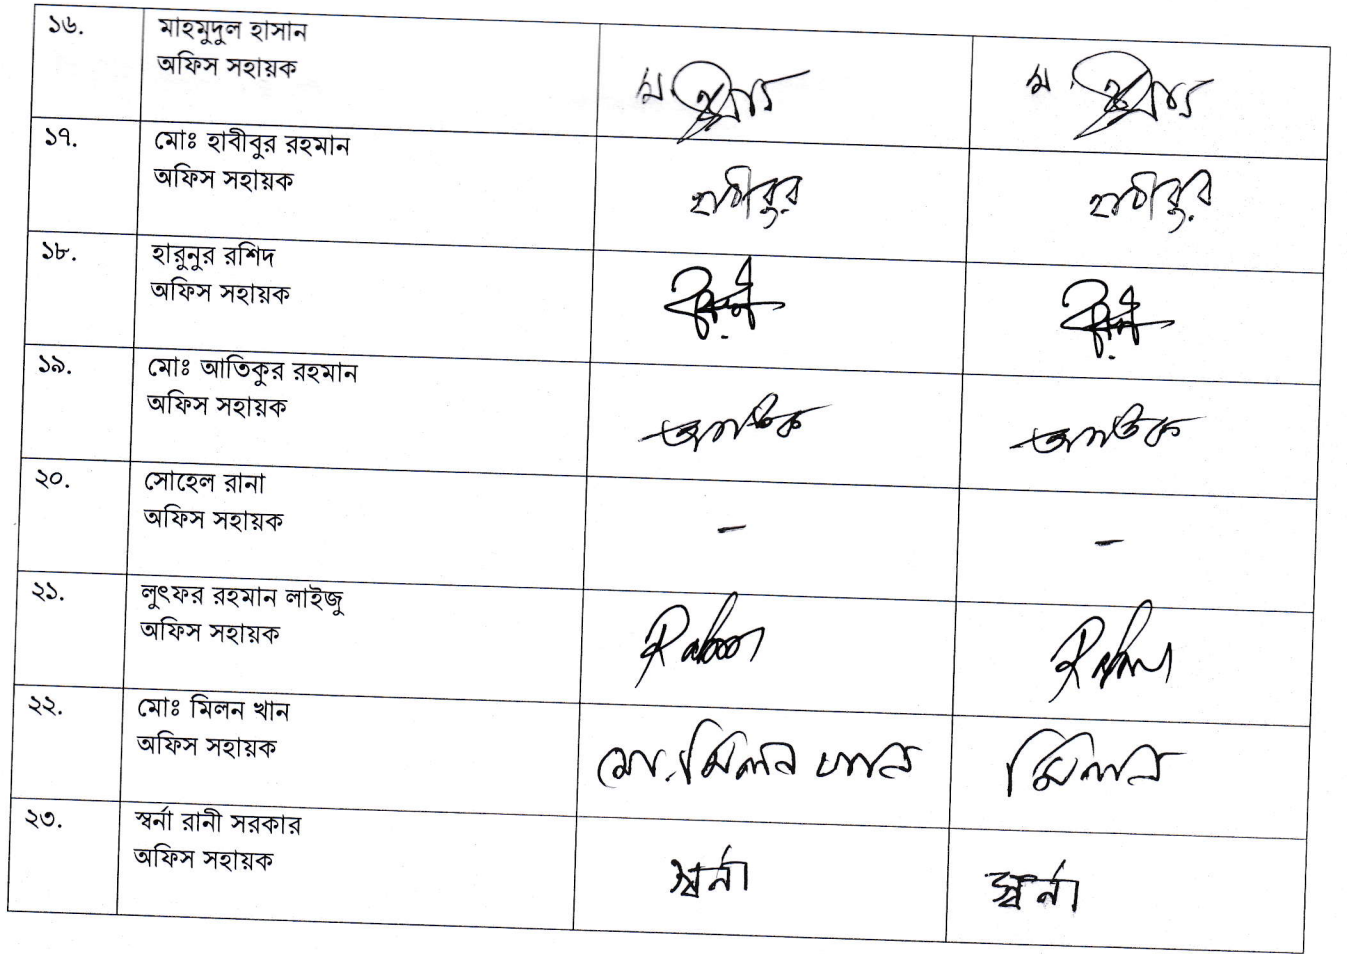 ১৬. মাহমুদুল হাসান
অফিস সহায়ক
১৭. মোঃ হাবীবুর রহমান
অফিস সহায়ক
হাবীবুর হাবীবুর
১৮. হারুনুর রশিদ
অফিস সহায়ক
১৯. মোঃ আতিকুর রহমান
অফিস সহায়ক
আতিক আতিক
২০. সোহেল রানা
অফিস সহায়ক
- -
২১. লুৎফর রহমান লাইজু
অফিস সহায়ক
২২. মোঃ মিলন খান
অফিস সহায়ক
মো. মিলন খান মিলন
২৩. স্বর্না রানী সরকার
অফিস সহায়ক
স্বর্না স্বর্না